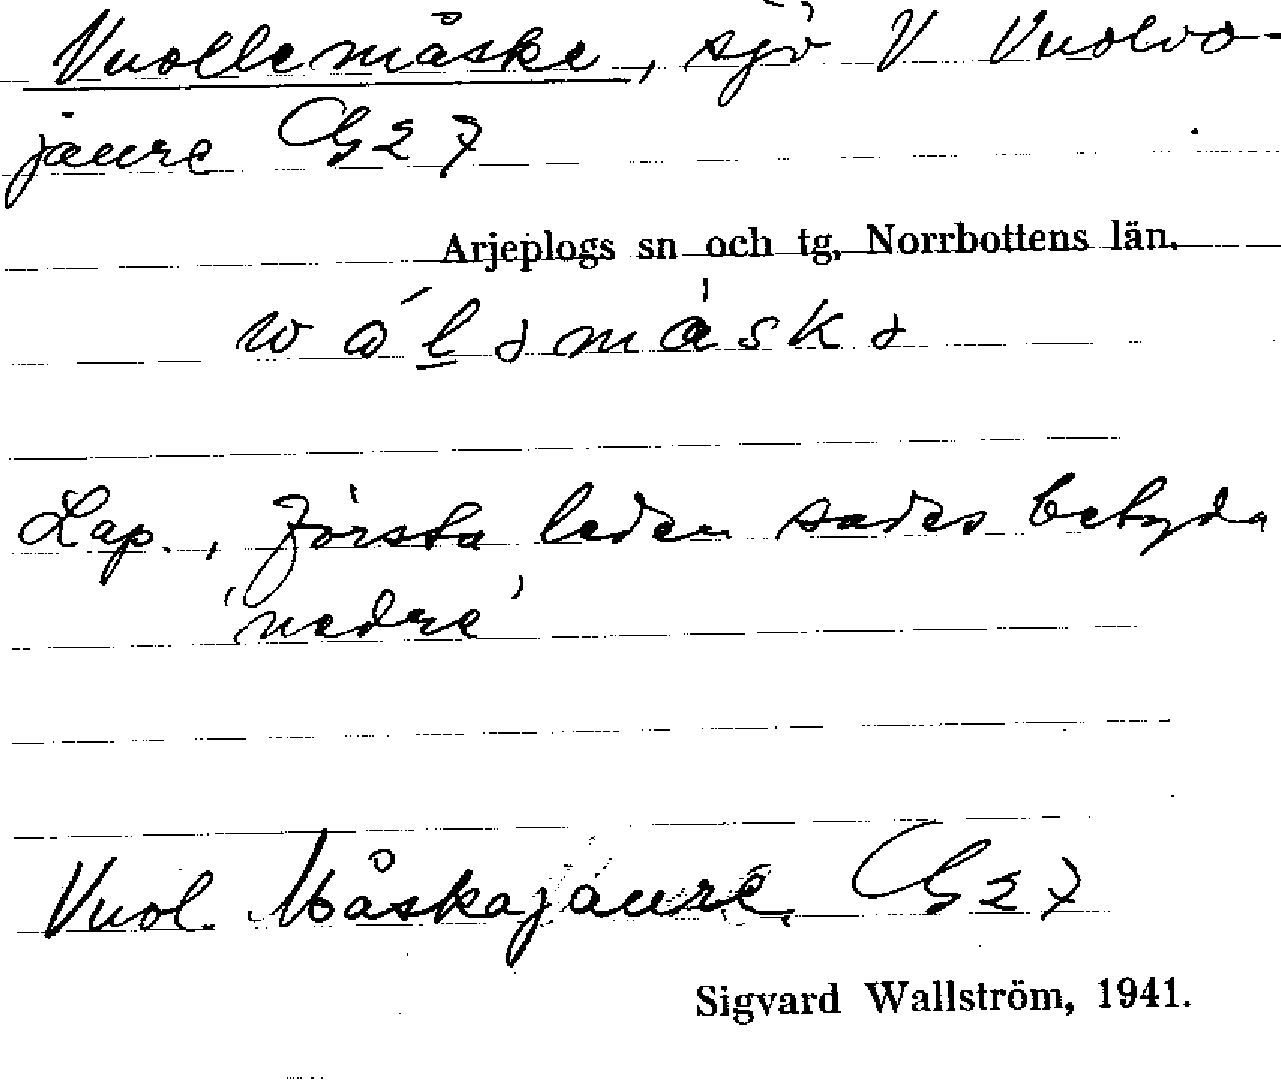 Vuollemåske, sjö V Vuolvo-
jaure G27
Arjeplogs sn och tg, Norrbottens län.
Lap., första leden sades betyda
'nedre'
Vuol. Måskajaure G27
Sigvard Wallström, 1941.